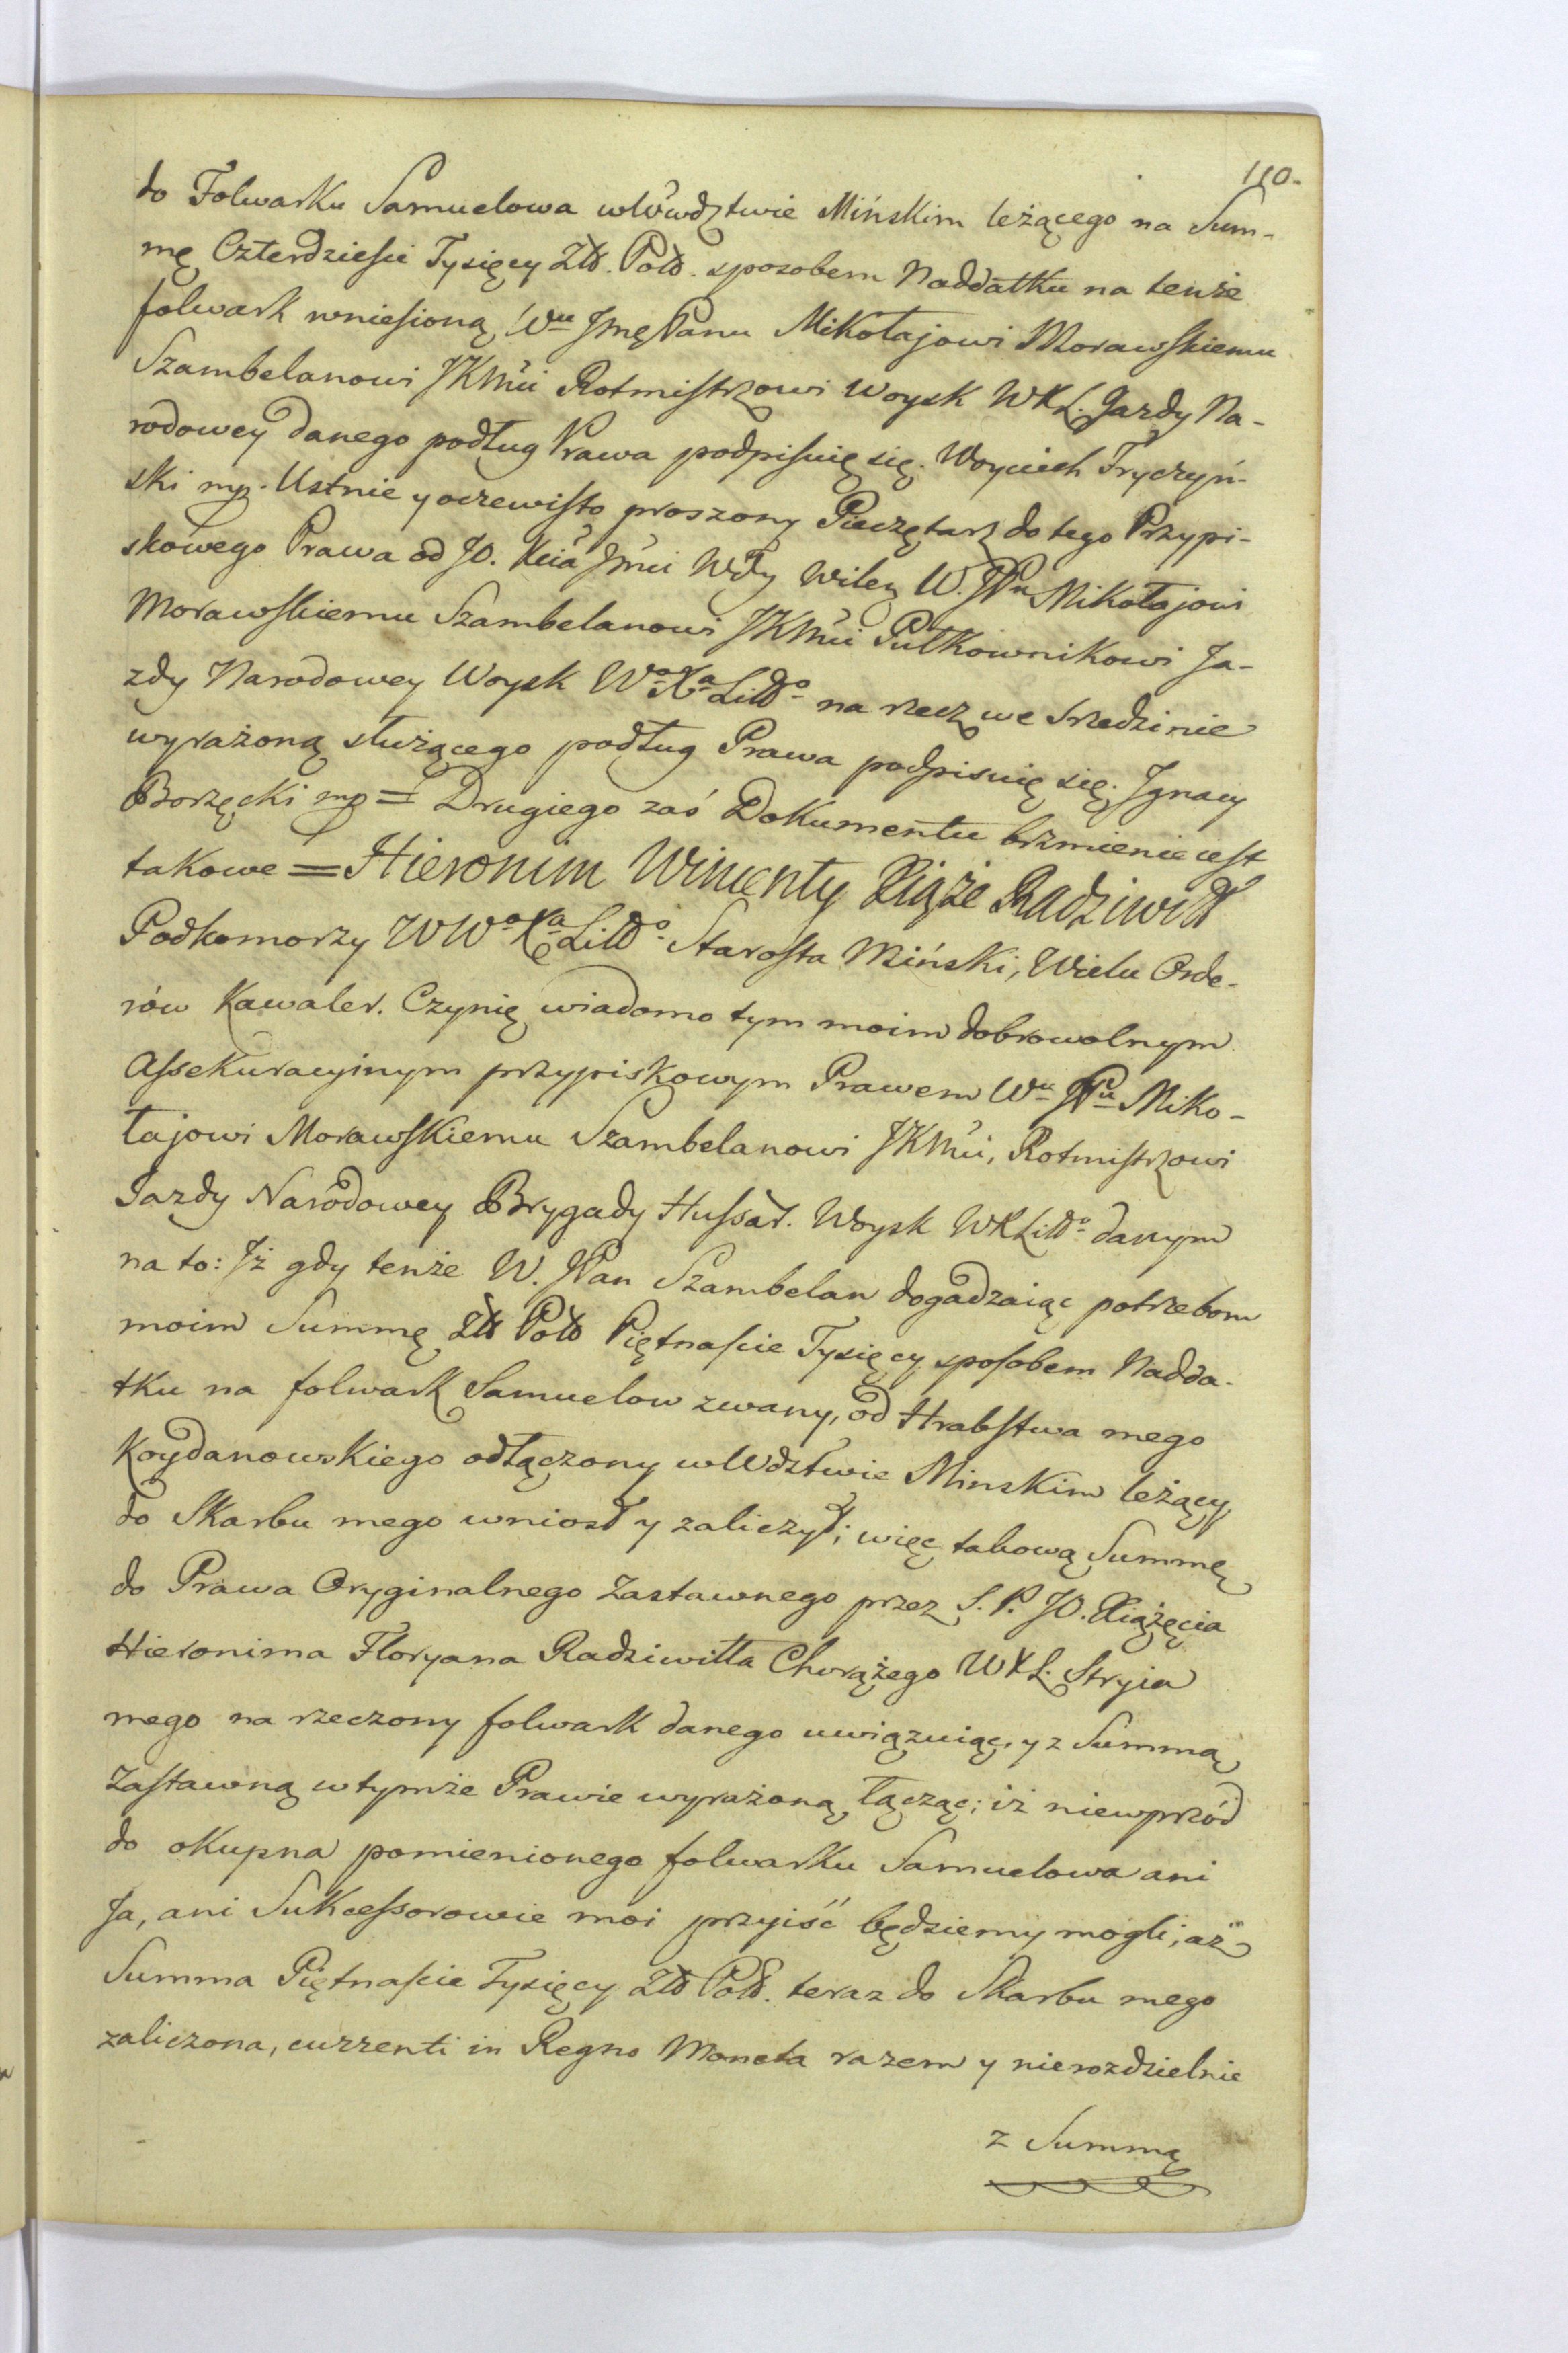 110.
do Folwarku Samuelowa w Wwdztwie Mińskim leżącego na Sum-
mę Czterdzieści Tysięcy Złł. Poll. sposobem Naddatku na tenże
folwark wniesioną, Wu Jmę Panu Mikołajowi Morawskiemu
Szambelanowi JKMci Rotmistrzowi Woysk WXL. Jazdy Na-
rodowey danego podług Prawa podpisuię się. Woyciech Tryczyń-
ski mp. Ustnie y oczewisto proszony Pieczętarz do tego Przypi-
skowego Prawa od JO. Xcia Jmci Wdy Wileń W. JPu Mikołajowi
Morawskiemu Szambelanowi JKMci Pułkownikowi Ja-
zdy Narodowey Woysk Wo Xa Litto na rzecz we srzedzinie
wyrażoną służącego podług Prawa podpisuię się. Jgnacy
Borzęcki mp = Drugiego zaś Dokumentu brzmienie iest
takowe = Hieronim Wincenty Xiąże Radziwiłł
Podkomorzy W Wo Xa Litto Starosta Miński, Wielu Orde-
rów Kawaler. Czynię wiadomo tym moim dobrowolnym
Assekuracyinym przypiskowym Prawem Wu JPu Miko-
łajowi Morawskiemu Szambelanowi JKMci, Rotmistrzowi
Jazdy Narodowey Brygady Hussar. Woysk WXLitto danym
na to: Jż gdy tenże W. JPan Szambelan dogadzaiąc potrzebom
moim Summę Złł Poll Piętnaście Tysięcy sposobem Nadda-
tku na folwark Samuelow zwany, od Hrabstwa mego
Koydanowskiego odłączony w Wdztwie Minskim leżący,
do Skarbu mego wniosł y zaliczył; więc takową Summę
do Prawa Oryginalnego Zastawnego przez S. P. JO. Xiążęcia
Hieronima Floryana Radziwiłła Chorążego WXL. Stryia
mego na rzeczony folwark danego uwiązuiąc, y z Summą
Zastawną w tymże Prawie wyrażoną łącząc; iż niewprzód
do okupna pomienionego folwarku Samuelowa ani
Ja, ani Sukcessorowie moi przyiść będziemy mogli; aż
Summa Piętnaście Tysięcy Złł Poll. teraz do Skarbu mego
zaliczona, currenti in Regno Moneta razem y nierozdzielnie
z Summą